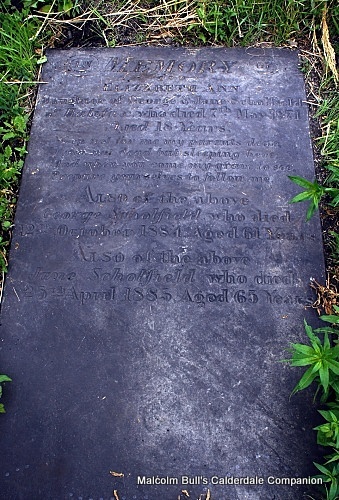 IN MEMORY OF
ELIZABETH ANN
Daughter of George & Jane Scholfield
who died May 1871
Aged 18 Years
Weep not for me my parents dear
not but sleeping here
to follow me
ALSO of the above
George Scholfield who died
October 1884 Aged 61 Years
ALSO of the above
Jane Scholfield who died
25th April 1885 Aged 65 Years
Malcolm Bull's Calderdale Companion